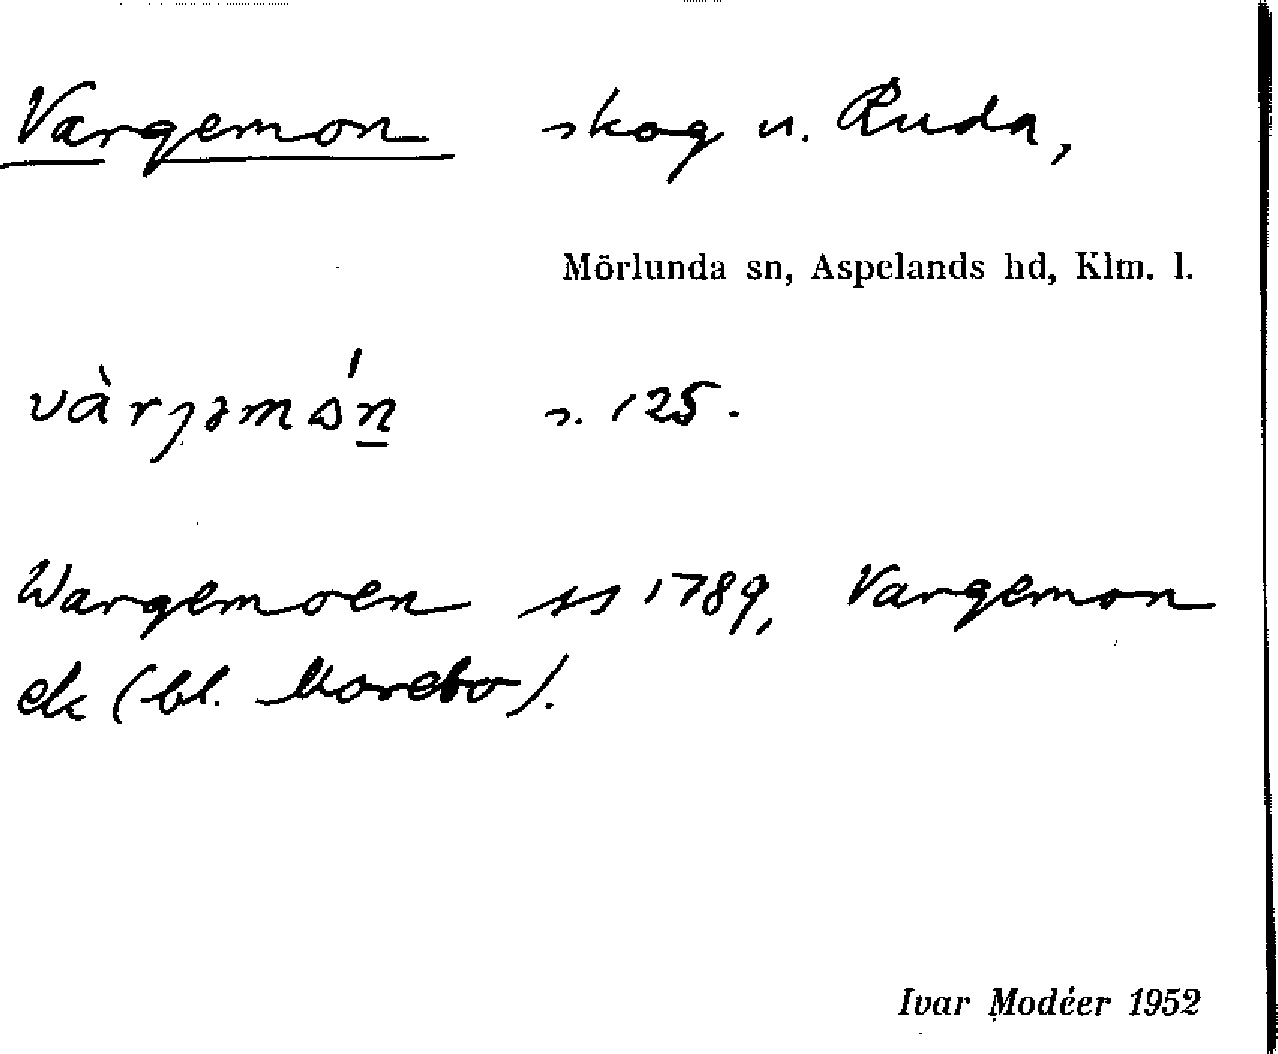 Vargemon skog u. Ruda,
Mörlunda sn, Aspelands hd, Klm. l.
s. 125.
Wargemoen ss 1789, Vargemon
ek (bl. Morebo).
Ivar Modéer 1952